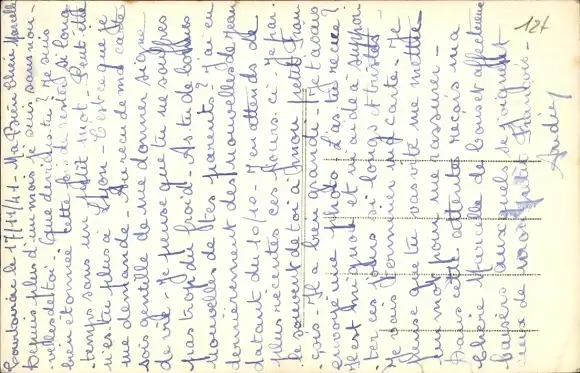 Courbevoie le 17/11/41 - Ma Bien Chère Marcelle
Depuis plus d'un mois je suis sans nou-
velles de toi. Que deviens-tu? Je suis
bien étonnée cette fois de rester si long
temps sans un petit mot - Peut-être
n'es-tu plus à Lyon - C'est ce que je
me demande - Au reçu de ma carte
sois gentille de me donner signe
de vie - Je pense que tu ne souffres
pas trop du froid - As-tu de bonnes
nouvelles de tes parents? J'ai eu
dernièrement des nouvelles de Jean
datant du 10/10 - J'en attends de
plus récentes ces jours-ci - Je par
le souvent de toi à mon petit Fran
çois - Il a bien grandi - Je t'avais
envoyé une photo L'as-tu reçue?
Il est mignon et m'aide à suppor
ter ces jours si longs et tristes -
Je vais terminer ma carte - Je
pense que tu vas vite me mettre
un mot pour me rassurer -
Dans cette attente reçois ma
chère Marcelle de bons et affectueux
baisers auxquels se joignent
ceux de mon petit François -
Andrée
127